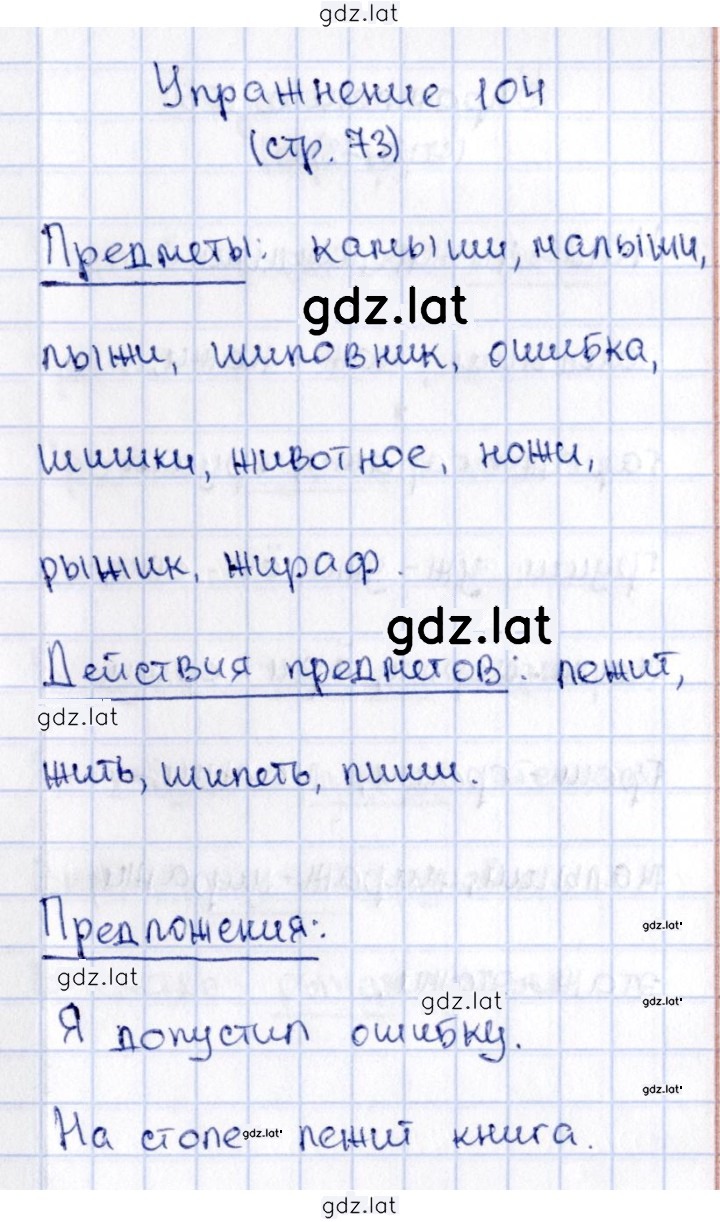 gdz.lat
Упражнение 104
(стр. 73)
Предметы: камыши, малыши,
gdz.lat
лыжи, шиповник, ошибка,
шишки, животное, ножи,
рыжик, жираф.
gdz.lat
Действия предметов: лежит,
gdz.lat
жить, шипеть, пиши.
Предложения:
gdz.lat
gdz.lat
gdz.lat
gdz.lat
Я допустил ошибку.
gdz.lat
На столе gdz.lat лежит книга.
gdz.lat